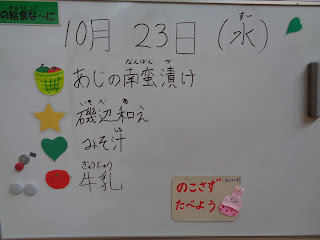 の給食な～に
10月 23日 (水)
あじの南蛮漬け
磯辺和え
みそ汁
牛乳
のこさず
たべよう